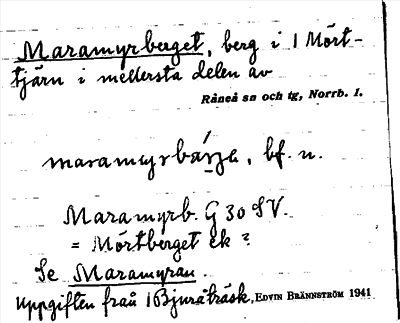 Maramyrberget, berg i 1 Mört-
tjärn i mellersta delen av
Råneå sn och tg, Norrb. l.
maramyrbärʒe, bf. n.
Maramyrb. G 30 SV.
= Mörtberget ek?
Se Maramyran.
Uppgiften från 1 Bjuråträsk, EDVIN BRÄNNSTRÖM 1941